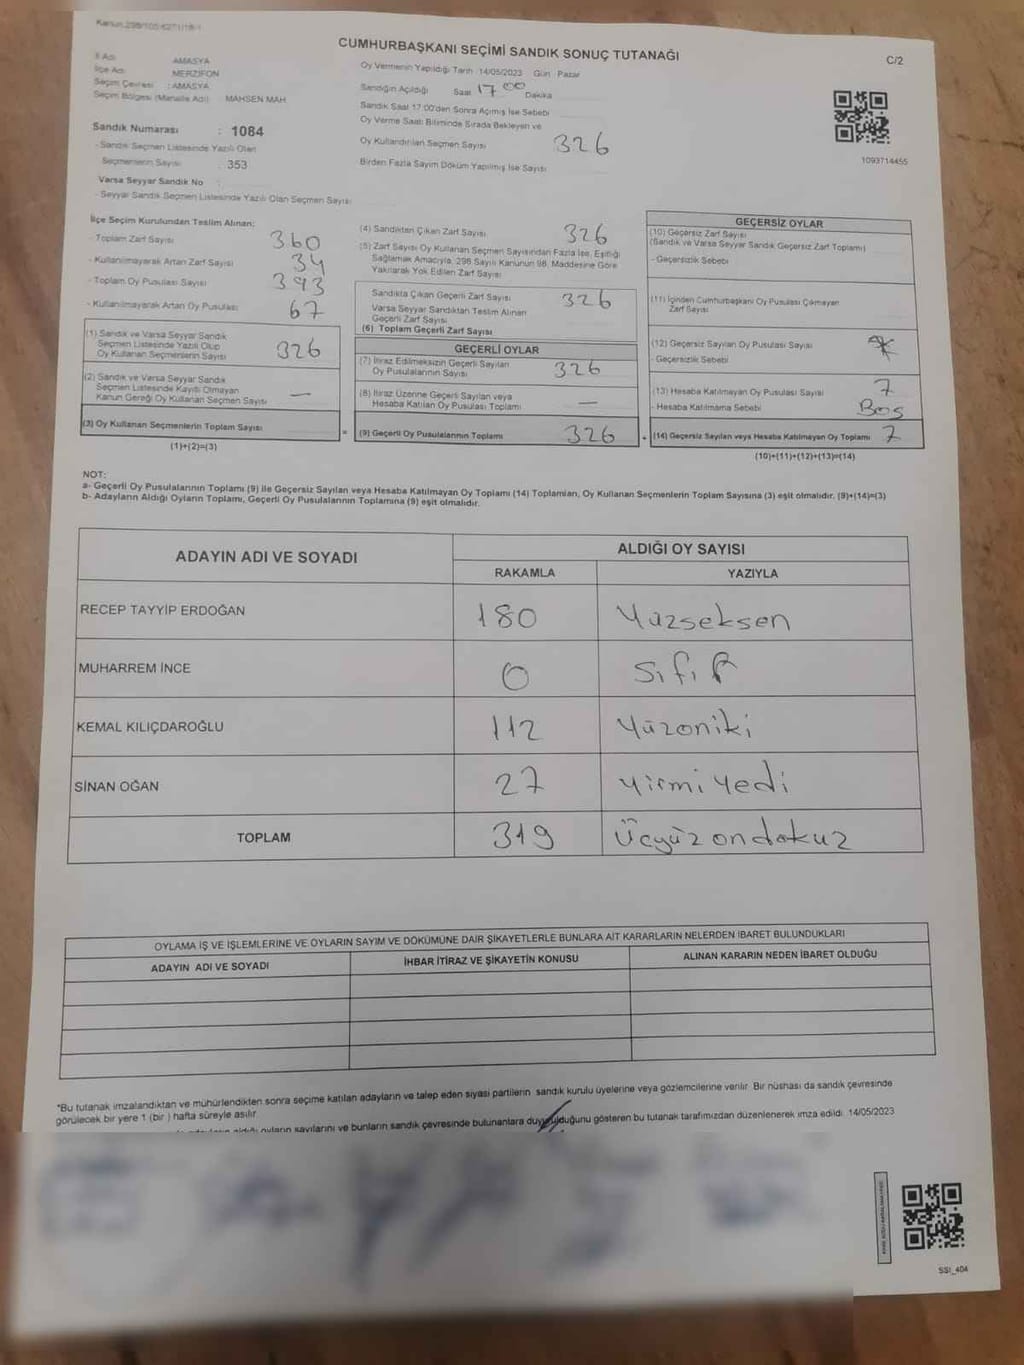 Kanun 298/105-6271/18-1
CUMHURBAŞKANI SEÇİMİ SANDIK SONUÇ TUTANAĞI
C/2
İl Adı AMASYA
İlçe Adı MERZİFON
Seçim Çevresi : AMASYA
Seçim Bölgesi (Mahalle Adı) MAHSEN MAH
Sandık Numarası : 1084
- Sandık Seçmen Listesinde Yazılı Olan
Seçmenlerin Sayısı : 353
Varsa Seyyar Sandık No
- Seyyar Sandık Seçmen Listesinde Yazılı Olan Seçmen Sayısı
Oy Vermenin Yapıldığı Tarih 14/05/2023 Gün Pazar
Sandığın Açıldığı Saat 17 00 Dakika
Sandık Saat 17:00'den Sonra Açılmış İse Sebebi
Oy Verme Saati Bitiminde Sırada Bekleyen ve
Oy Kullandırılan Seçmen Sayısı 326
Birden Fazla Sayım Döküm Yapılmış İse Sayısı
1093714455
İlçe Seçim Kurulundan Teslim Alınan:
- Toplam Zarf Sayısı 360
- Kullanılmayarak Artan Zarf Sayısı 34
- Toplam Oy Pusulası Sayısı 393
- Kullanılmayarak Artan Oy Pusulası 67
(1) Sandık ve Varsa Seyyar Sandık
Seçmen Listesinde Yazılı Olup
Oy Kullanan Seçmenlerin Sayısı 326
(2) Sandık ve Varsa Seyyar Sandık
Seçmen Listesinde Kayıtlı Olmayan
Kanun Gereği Oy Kullanan Seçmen Sayısı —
(3) Oy Kullanan Seçmenlerin Toplam Sayısı
(1)+(2)=(3)
(4) Sandıktan Çıkan Zarf Sayısı 326
(5) Zarf Sayısı Oy Kullanan Seçmen Sayısından Fazla İse, Eşitliği
Sağlamak Amacıyla, 298 Sayılı Kanunun 98. Maddesine Göre
Yakılarak Yok Edilen Zarf Sayısı
Sandıkta Çıkan Geçerli Zarf Sayısı 326
Varsa Seyyar Sandıktan Teslim Alınan
Geçerli Zarf Sayısı
(6) Toplam Geçerli Zarf Sayısı
GEÇERLİ OYLAR
(7) İtiraz Edilmeksizin Geçerli Sayılan
Oy Pusulalarının Sayısı 326
(8) İtiraz Üzerine Geçerli Sayılan veya
Hesaba Katılan Oy Pusulası Toplamı —
= (9) Geçerli Oy Pusulalarının Toplamı 326
GEÇERSİZ OYLAR
(10) Geçersiz Zarf Sayısı
(Sandık ve Varsa Seyyar Sandık Geçersiz Zarf Toplamı)
- Geçersizlik Sebebi
(11) İçinden Cumhurbaşkanı Oy Pusulası Çıkmayan
Zarf Sayısı
(12) Geçersiz Sayılan Oy Pusulası Sayısı
- Geçersizlik Sebebi
(13) Hesaba Katılmayan Oy Pusulası Sayısı 7
- Hesaba Katılmama Sebebi Boş
+ (14) Geçersiz Sayılan veya Hesaba Katılmayan Oy Toplamı 7
(10)+(11)+(12)+(13)=(14)
NOT:
a- Geçerli Oy Pusulalarının Toplamı (9) ile Geçersiz Sayılan veya Hesaba Katılmayan Oy Toplamı (14) Toplamları, Oy Kullanan Seçmenlerin Toplam Sayısına (3) eşit olmalıdır. (9)+(14)=(3)
b- Adayların Aldığı Oyların Toplamı, Geçerli Oy Pusulalarının Toplamına (9) eşit olmalıdır.
ADAYIN ADI VE SOYADI
ALDIĞI OY SAYISI
RAKAMLA YAZIYLA
RECEP TAYYİP ERDOĞAN 180 Yüzseksen
MUHARREM İNCE 0 Sıfır
KEMAL KILIÇDAROĞLU 112 Yüzoniki
SİNAN OĞAN 27 Yirmiyedi
TOPLAM 319 Üçyüz ondokuz
OYLAMA İŞ VE İŞLEMLERİNE VE OYLARIN SAYIM VE DÖKÜMÜNE DAİR ŞİKAYETLERLE BUNLARA AİT KARARLARIN NELERDEN İBARET BULUNDUKLARI
ADAYIN ADI VE SOYADI İHBAR İTİRAZ VE ŞİKAYETİN KONUSU ALINAN KARARIN NEDEN İBARET OLDUĞU
*Bu tutanak imzalandıktan ve mühürlendikten sonra seçime katılan adayların ve talep eden siyasi partilerin sandık kurulu üyelerine veya gözlemcilerine verilir. Bir nüshası da sandık çevresinde
görülecek bir yere 1 (bir) hafta süreyle asılır.
aldığı oyların sayılarını ve bunların sandık çevresinde bulunanlara duyurulduğunu gösteren bu tutanak tarafımızdan düzenlenerek imza edildi. 14/05/2023
SSİ_404